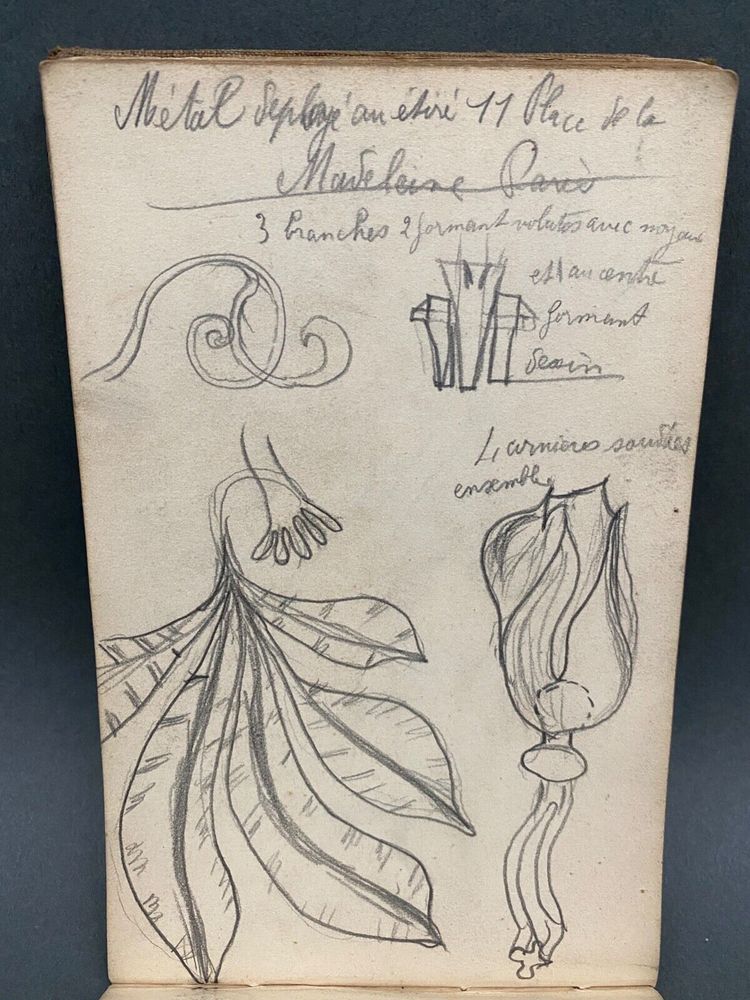 Métal deployé au étiré 11 Place de la
Madeleine Paris
3 branches 2 formant volutes avec noyaux
et 1 au centre
formant
dessin
4 soudées
ensemble